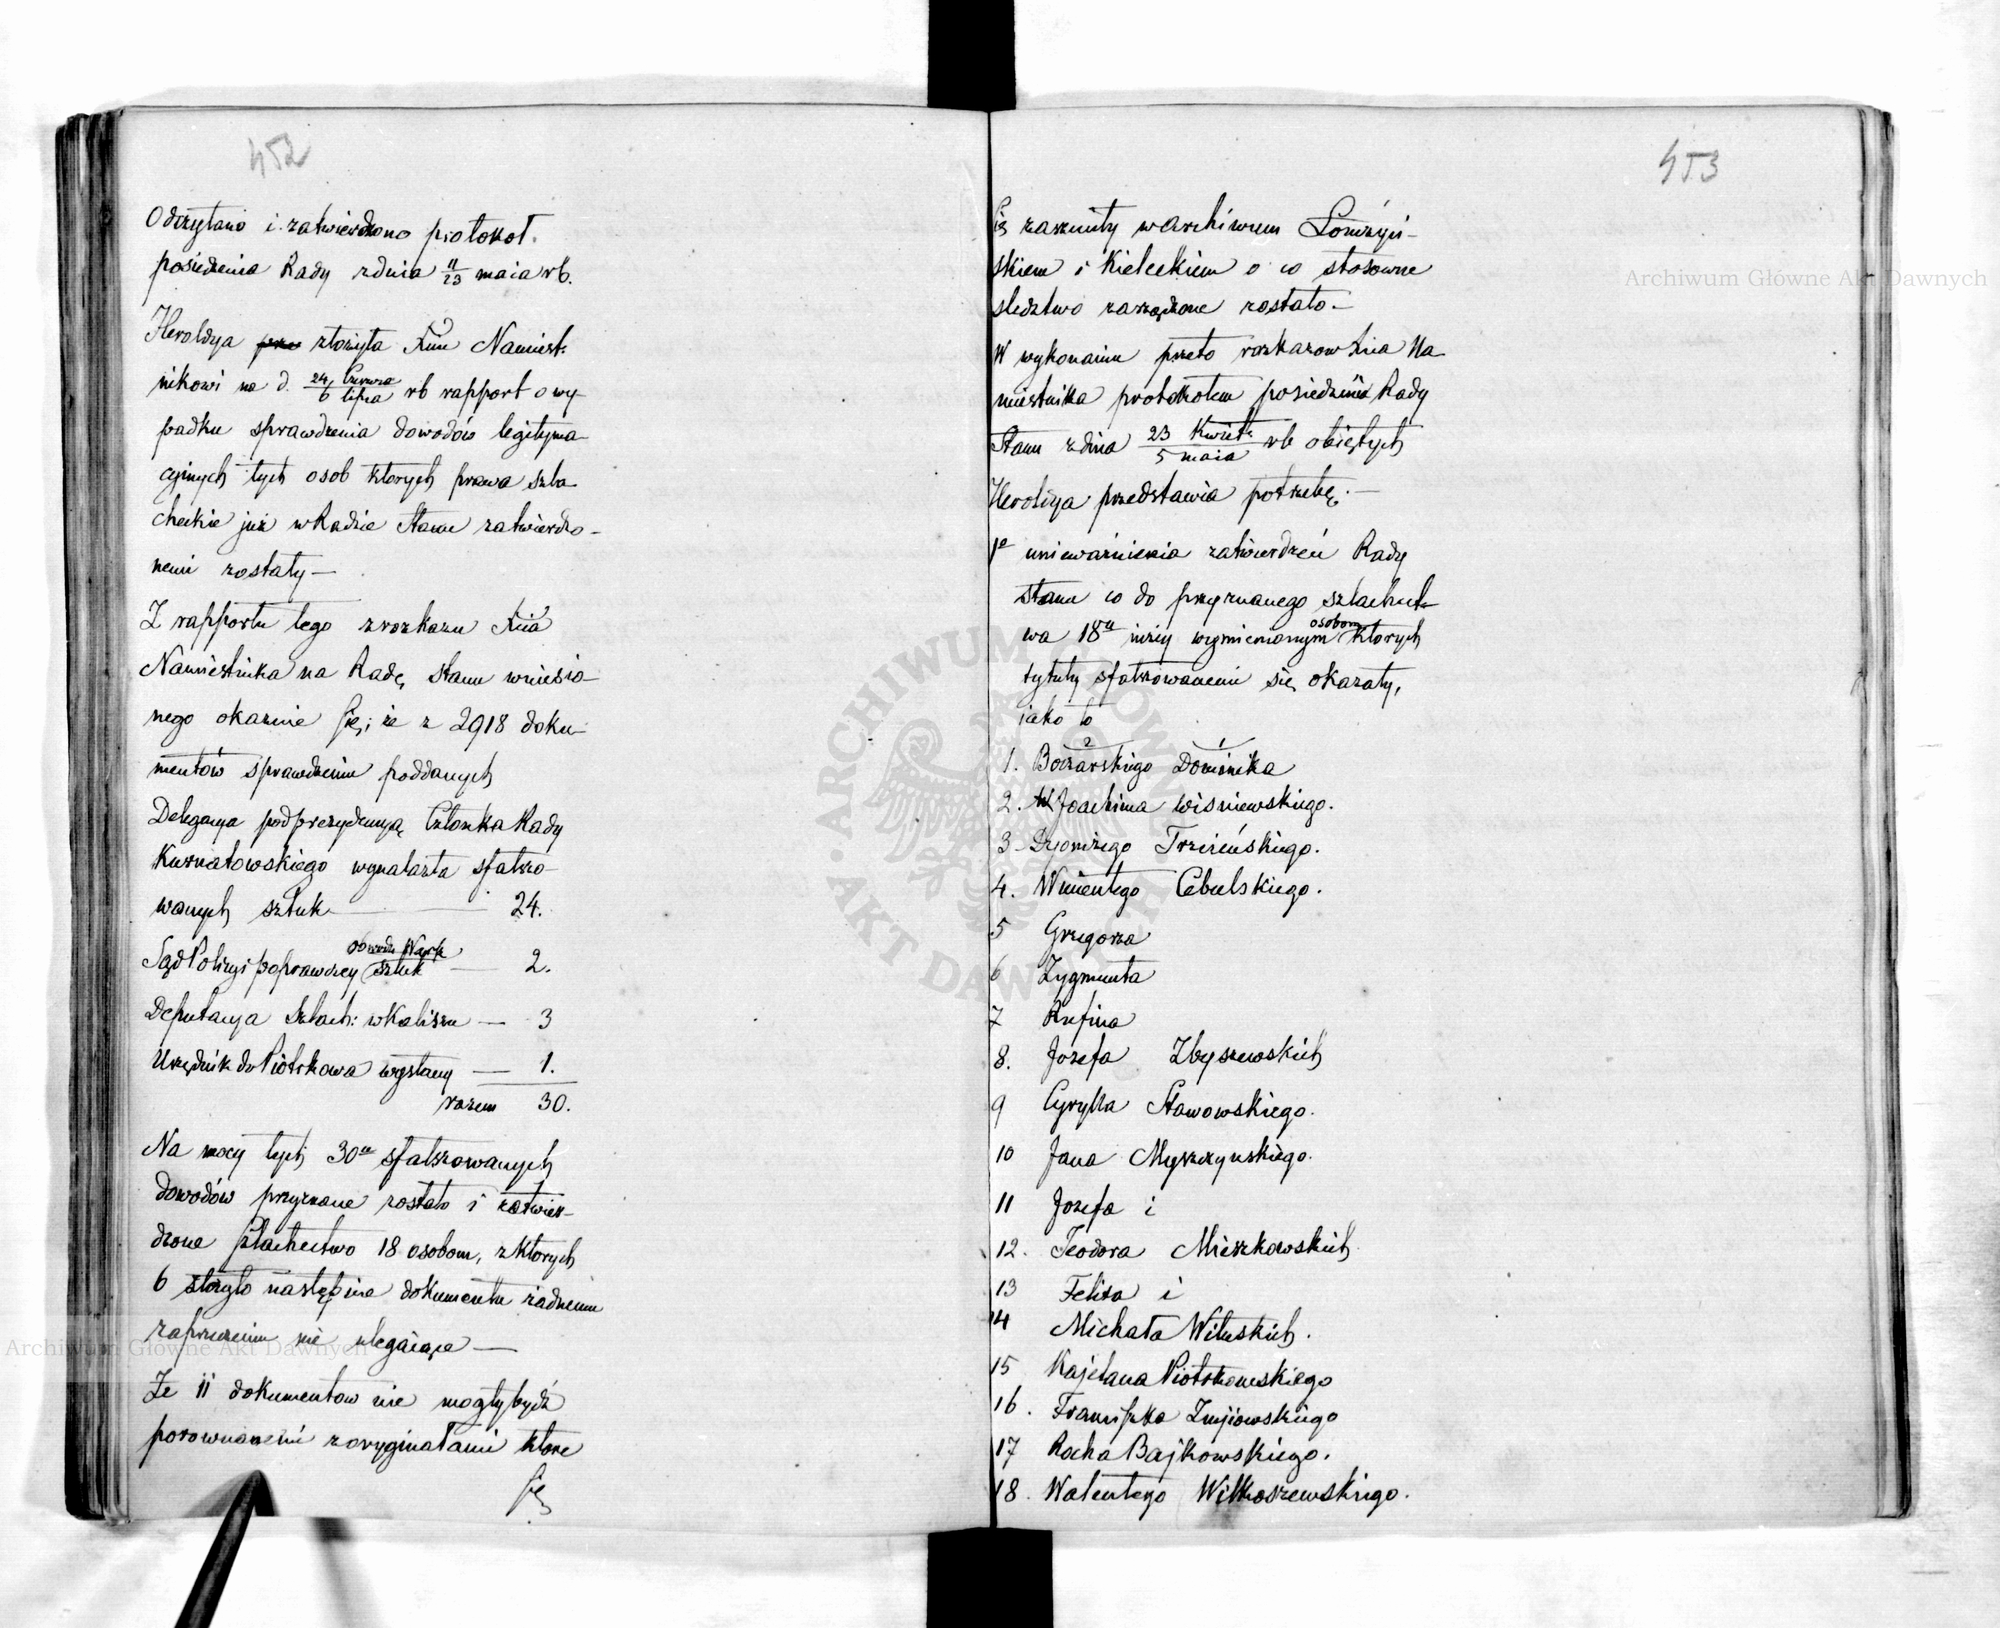 452
Odczytano i zatwierdzono protokoł
posiedzenia Rady z dnia 11/23 maia rb.
Heroldya złożyła Xciu Namiest-
nikowi na d. 24 Czerwca/6 lipca rb rapport o wy-
padku sprawdzenia dowodów legityma-
cyinych tych osob ktorych prawa szla-
checkie już w Radzie Stanu zatwierdzo-
nemi zostały —
Z rapportu tego z rozkazu Xcia
Namiestnika na Radę Stanu wniesio-
nego okazuie się, że z 2918 doku-
mentów sprawdzeniu poddanych
Delegacya pod prezydencyą Członka Rady
Kurnatowskiego wynalazła sfałszo-
wanych sztuk — 24.
Sąd Policyi poprawczey obwodu Warsz sztuk — 2.
Deputacya Szlach: w Kaliszu — 3
Urzędnik do Piotrkowa wysłany — 1.
razem 30.
Na mocy tych 30u sfałszowanych
dowodów przyznane zostało i zatwier-
dzone szlachectwo 18 osobom, z ktorych
6 złożyło następnie dokumenta żadnemu
zaprzeczeniu nie ulegaiące —
Że 11 dokumentow nie mogły bydź
porownanemi z oryginałami ktore
się
453
się zarzuciły w archiwum Łomżyń-
skiem i Kieleckiem o co stosowne
sledztwo zarządzone zostało —
W wykonaniu przeto rozkazow Xcia Na-
miestnika protokołem posiedzenia Rady
Stanu z dnia 23 Kwiet:/5 maia rb obiętych
Heroldya przedstawia potrzebę —
1o unieważnienia zatwierdzeń Rady
Stanu co do przyznanego szlachect-
wa 18u niżey wymienionym osobom ktorych
tytuły sfałszowanemi się okazały,
iako to
2 1
1. Boczarskiego Dominika
2. Joachima Wisniewskiego.
3 - Dyonizego Trzcińskiego.
4. Wincentego Cebulskiego.
5 Grzegorza
6 Zygmunta
7 Rufina
8. Jozefa Zbyszewskich
9 Cyrylla Stawowskiego.
10 Jana Myszczynskiego.
11 Jozefa i
12. Teodora Mieszkowskich
13 Felixa i
14 Michała Wituskich.
15 Kajetana Piotrkowskiego
16. Franciszka Zmijowskiego
17 Rocha Bajkowskiego.
18. Walentego Wilkoszewskiego.
Archiwum Główne Akt Dawnych
Archiwum Główne Akt Dawnych
ARCHIWUM GŁÓWNE AKT DAWNYCH